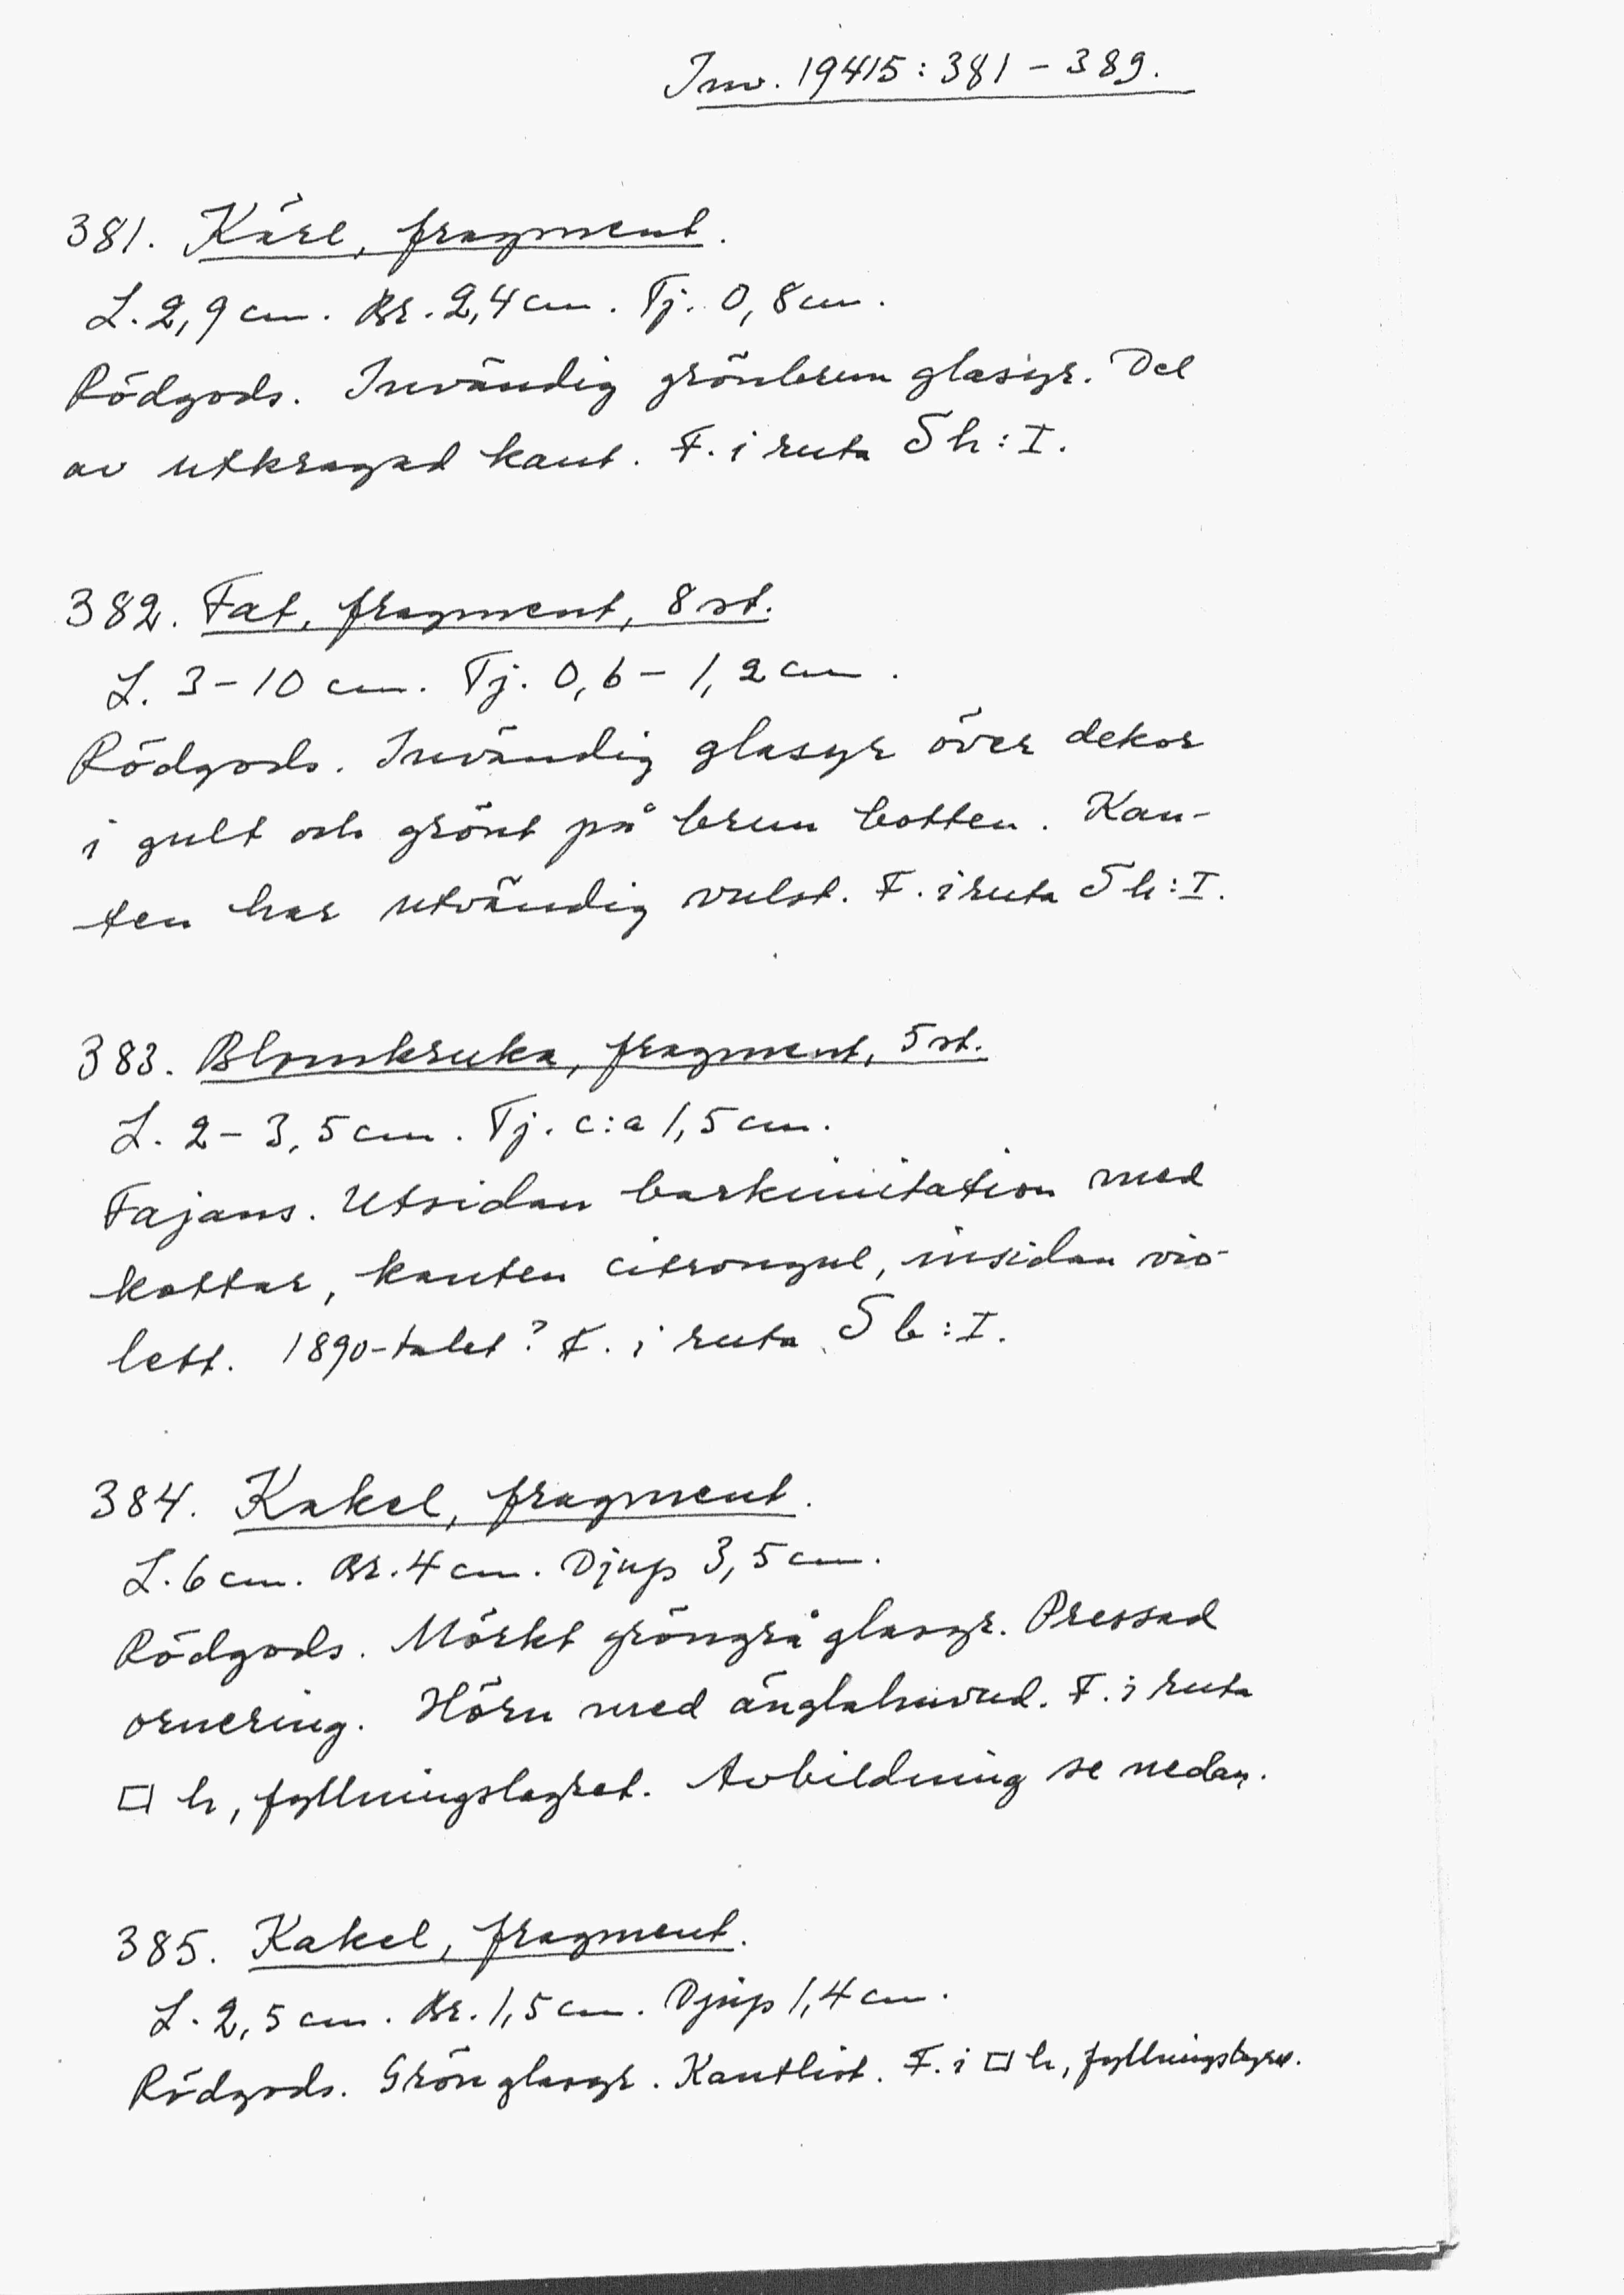 Inv. 19415:381-389.
381. Kärl, fragment.
L. 2,9 cm. Br. 2,4 cm. Tj. 0,8 cm.
Rödgods. Invändig grönbrun glasyr. Del
av utkragad kant. F. i ruta Sh:I.
382. Fat, fragment, 8 st.
L. 3-10 cm. Tj. 0,6-1,2 cm.
Rödgods. Invändig glasyr över dekor
i gult och grönt på brun botten. Kan-
ten har utvändig vulst. F. i ruta Sh:I.
383. Blomkruka, fragment, 5 st.
L. 2-3,5 cm. Tj. c:a 1,5 cm.
Fajans. Utsidan barkimitation med
kottar, kanten citrongul, insidan vio-
lett. 1890-talet? F. i ruta Sb:I.
384. Kakel, fragment.
L. 6 cm. Br. 4 cm. Djup 3,5 cm.
Rödgods. Mörkt gröngrå glasyr. Pressad
ornering. Hörn med änglahuvud. F. i ruta
□ h, fyllningslagret. Avbildning se nedan.
385. Kakel, fragment.
L. 2,5 cm. Br. 1,5 cm. Djup 1,4 cm.
Rödgods. Grön glasyr. Kantlist. F. i □ h, fyllningslagret.